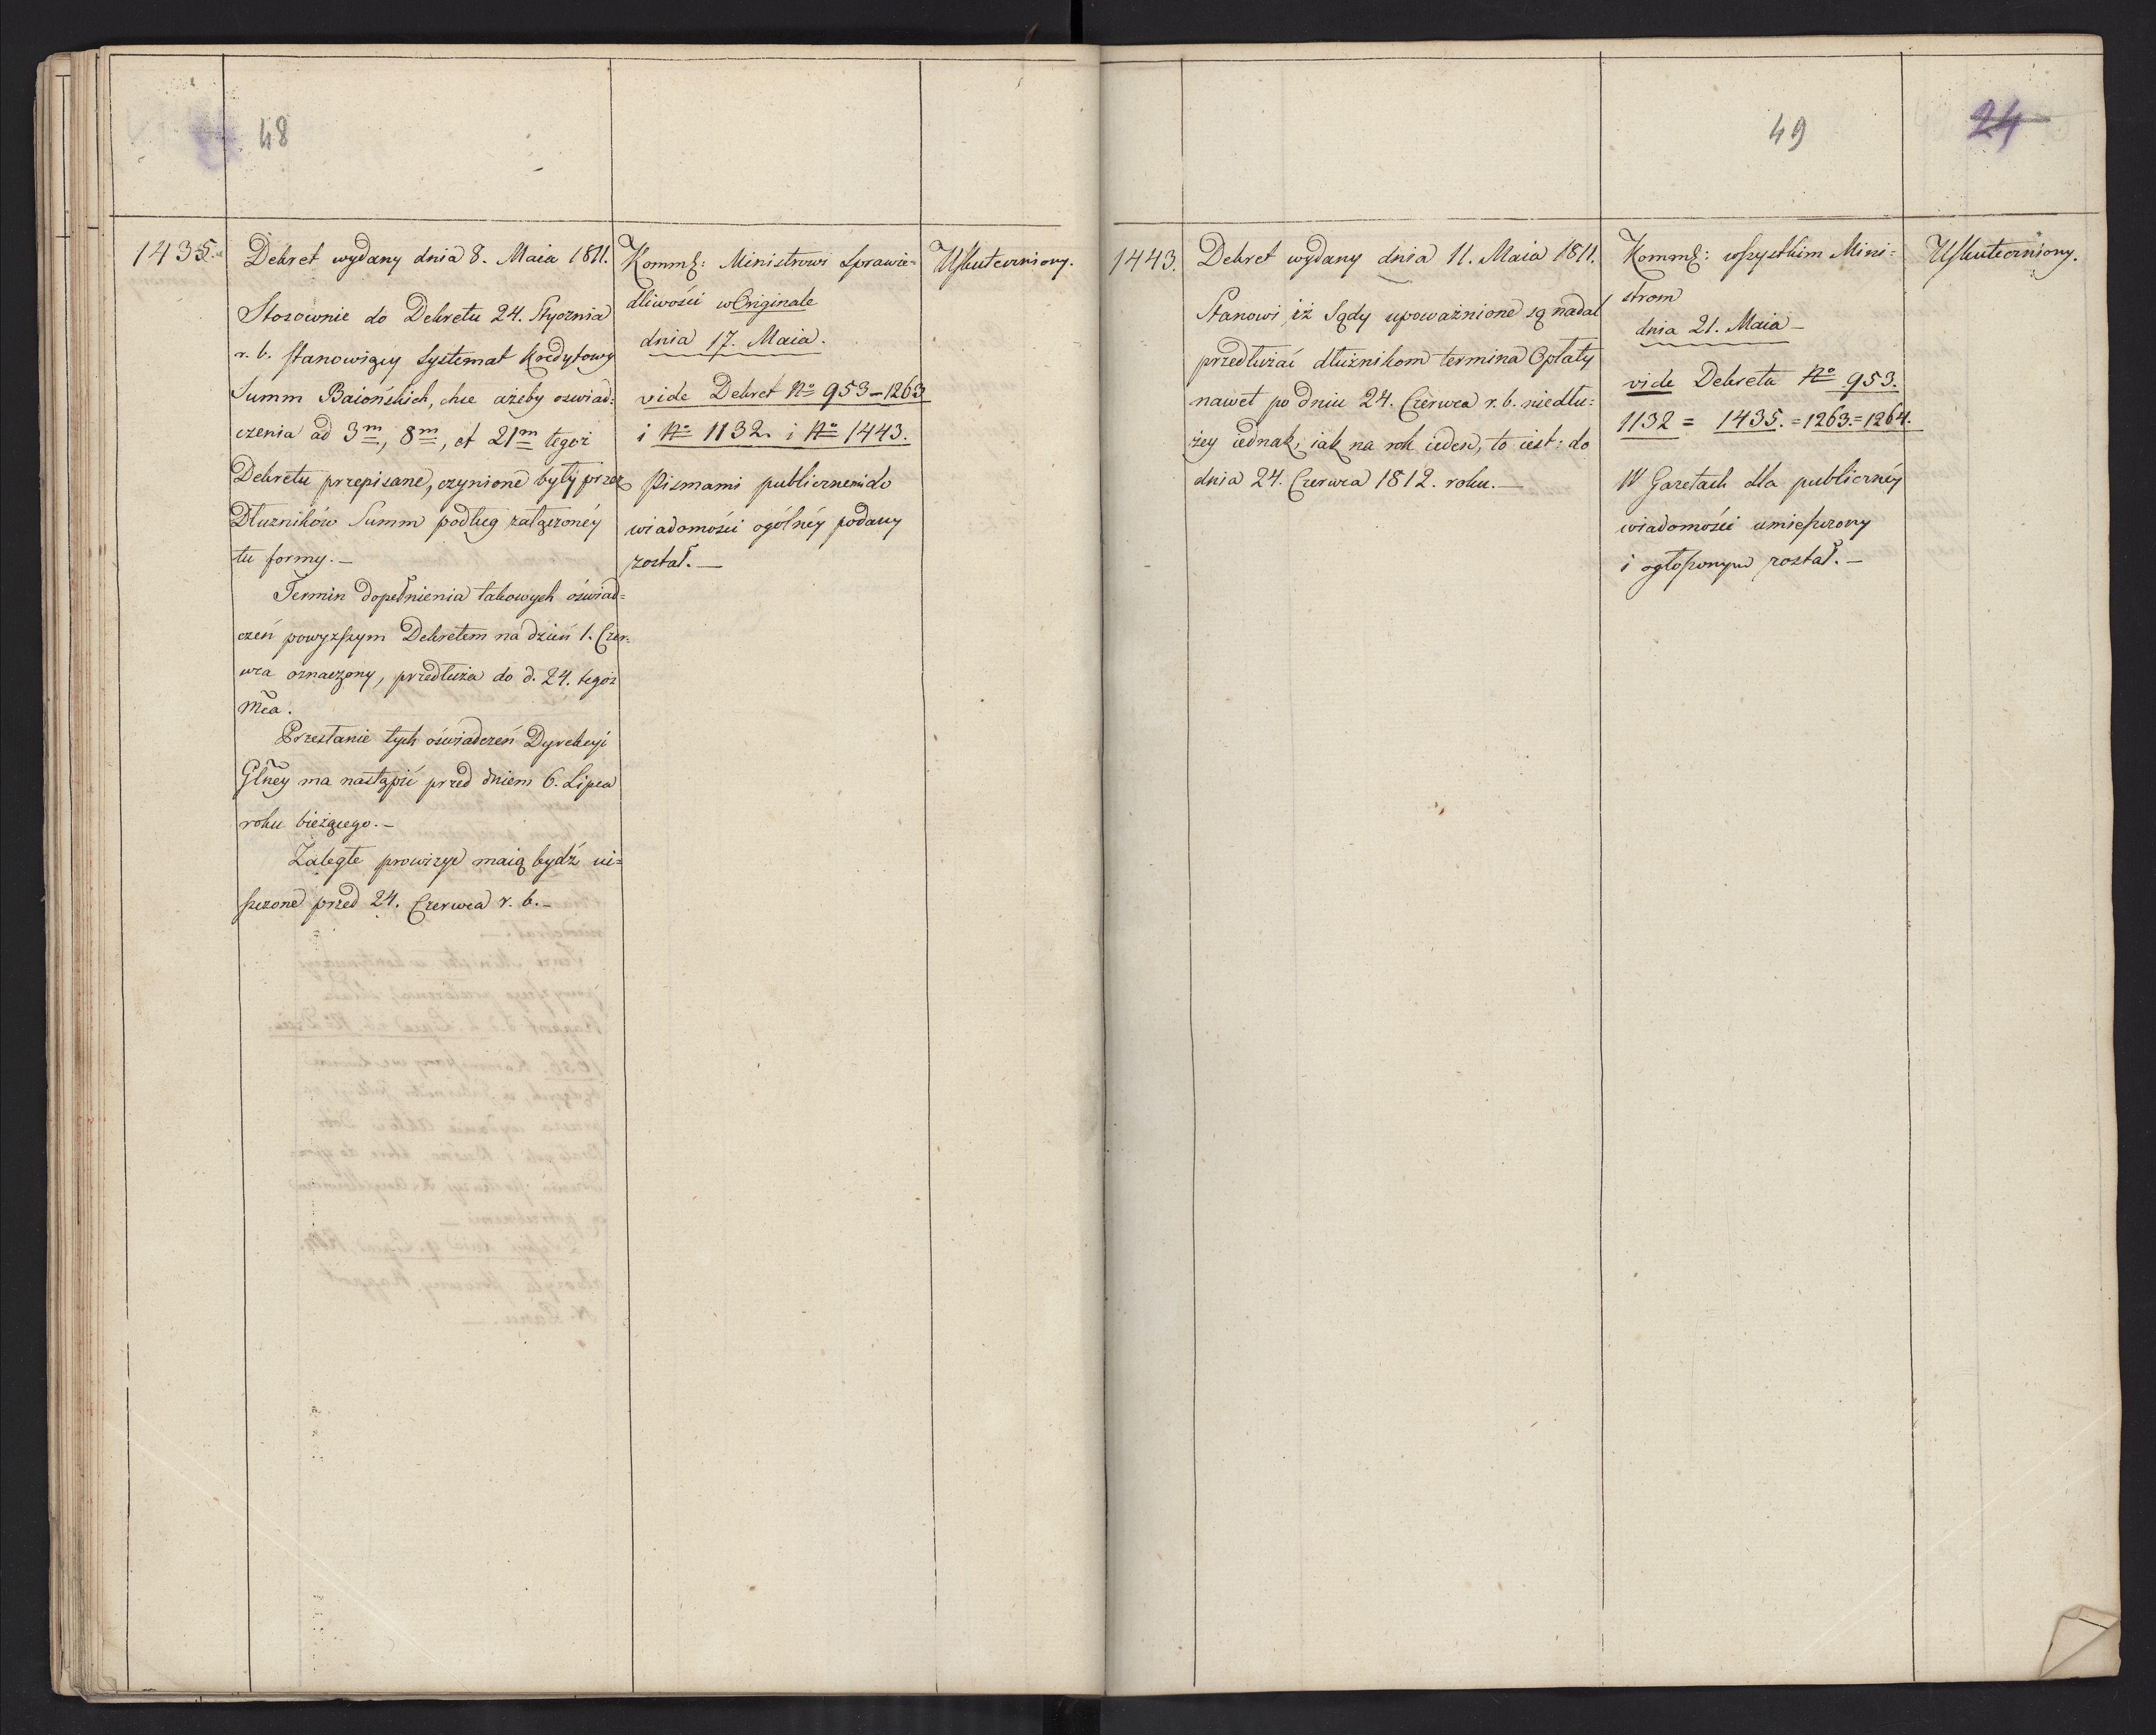 48
1435.
Dekret wydany dnia 8. Maia 1811.
Stosownie do Dekretu 24. Stycznia
r. b. stanowiący Systemat Kredytowy
Summ Baiońskich, chce ażeby oswiad:
czenia ad 3m, 8m, et 21m tegoż
Dekretu przepisane, czynione były przez
Dłużników Summ podług załączonéy
tu formy. —
Termin dopełnienia takowych oświad=
czeń powyższym Dekretem na dzień 1. Czer:
wca oznaczony, przedłuża do d. 24. tegoż
Mca.
Przesłanie tych oświadczeń Dyrekcyi
Głney ma nastąpić przed dniem 6. Lipca
roku bieżącego. —
Zaległe prowizye maią bydź ui=
szczone przed 24. Czerwca r. b. —
Komm: Ministrowi Sprawie=
dliwości w Originale
dnia 17. Maia.
vide Dekret No 953 — 1263
i No 1132. i No 1443.
Pismami publicznemi do
wiadomości ogólnéy podany
został. —
Uskuteczniony.
49
24
1443.
Dekret wydany dnia 11. Maia 1811.
Stanowi, iż Sądy upoważnione są nadal
przedłużać dłużnikom termina Opłaty
nawet po dniu 24. Czerwca r. b. niedłu:
żey iednak, iak na rok ieden, to iest: do
dnia 24. Czerwca 1812. roku. —
Komm: wszystkim Mini=
strom
dnia 21. Maia —
vide Dekreta No 953.
1132 = 1435. = 1263. = 1264.
W Gazetach dla publicznéy
wiadomości umieszczony
i ogłoszonym został. —
Uskuteczniony.